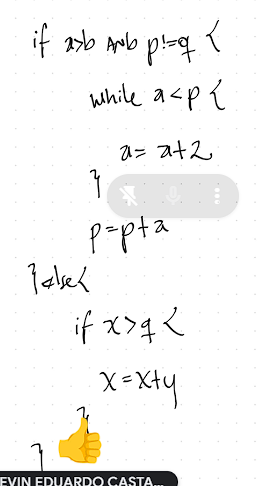 if a>b AND p!=q {
while a<p {
a=a+2
}
p=p+a
}else{
if x>q {
x=x+y
}
}
EVIN EDUARDO CASTA...